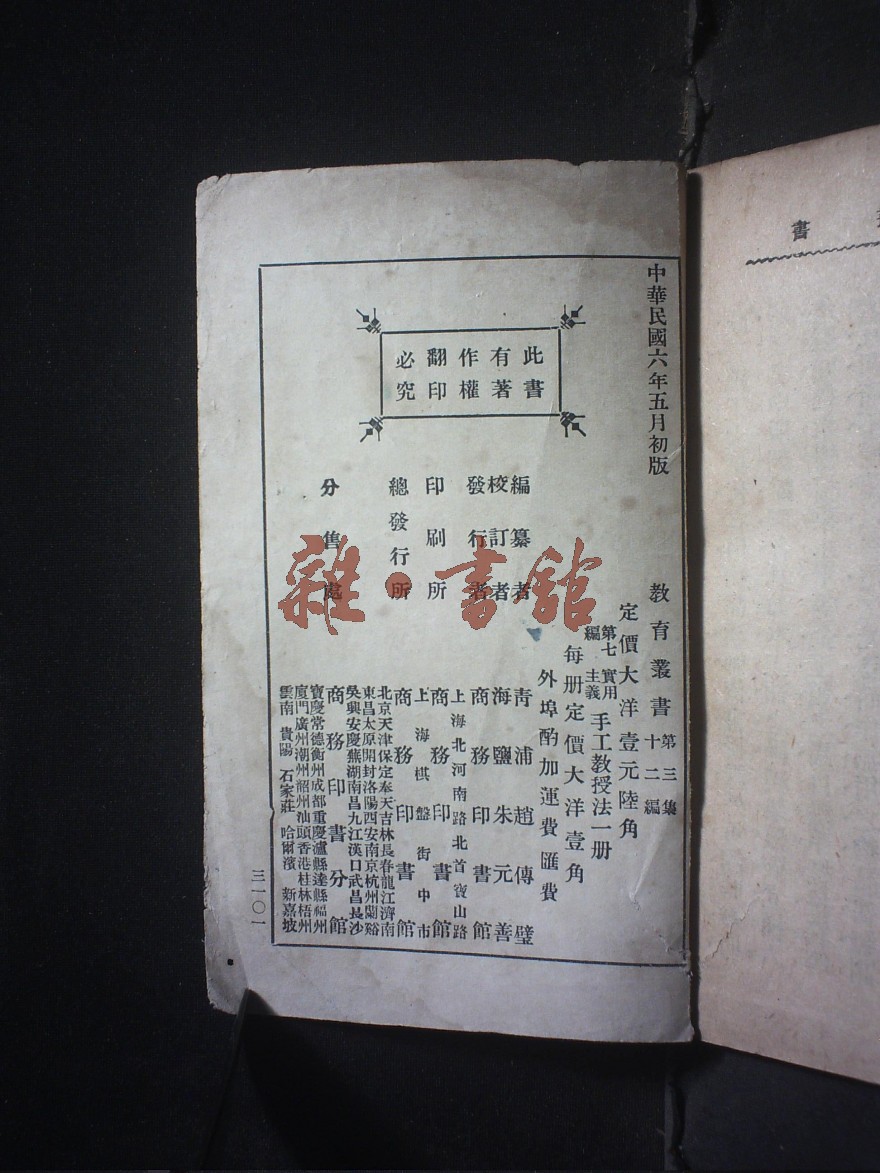 書
中華民國六年五月初版
教育叢書第三集十二編
定價大洋壹元陸角
第七編 實用主義 手工教授法一册
每册定價大洋壹角
外埠酌加運費匯費
此書
有著
作權
翻印
必究
編纂者 青浦趙傳璧
校訂者 海鹽朱元善
發行者 商務印書館
印刷所 上海北河南路北首寶山路
商務印書館
總發行所 上海棋盤街中市
商務印書館
分售處
北京天津保定奉天吉林長春龍江濟南
東昌太原開封洛陽西安南京杭州蘭谿
吳興安慶蕪湖南昌九江漢口武昌長沙
商務印書分館
寶慶常德衡州成都重慶瀘縣達縣福州
廈門廣州潮州韶州汕頭香港桂林梧州
雲南 貴陽 石家莊 哈爾濱 新嘉坡
三一〇一
雜·書館